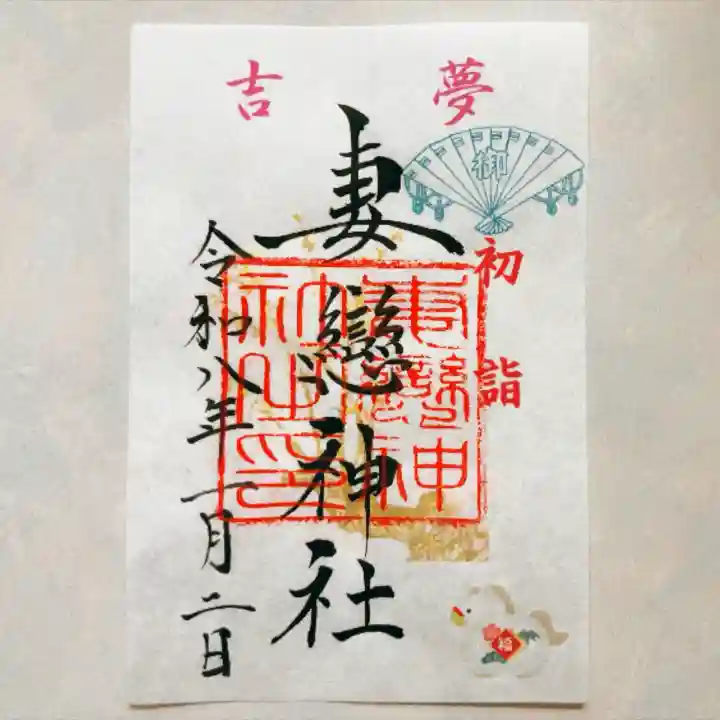 吉夢
柳
初詣
妻戀神社
妻戀神社之印
令和八年一月二日
福